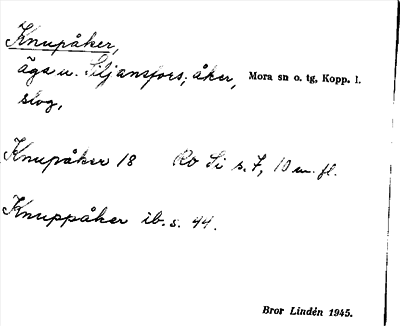 Knupåker,
äga u. Siljansfors; åker, Mora sn o. tg, Kopp. l.
skog,
Knupåker 18 Ro Si s. 7, 10 m. fl.
Knuppåker ib. s. 44.
Bror Lindén 1945.